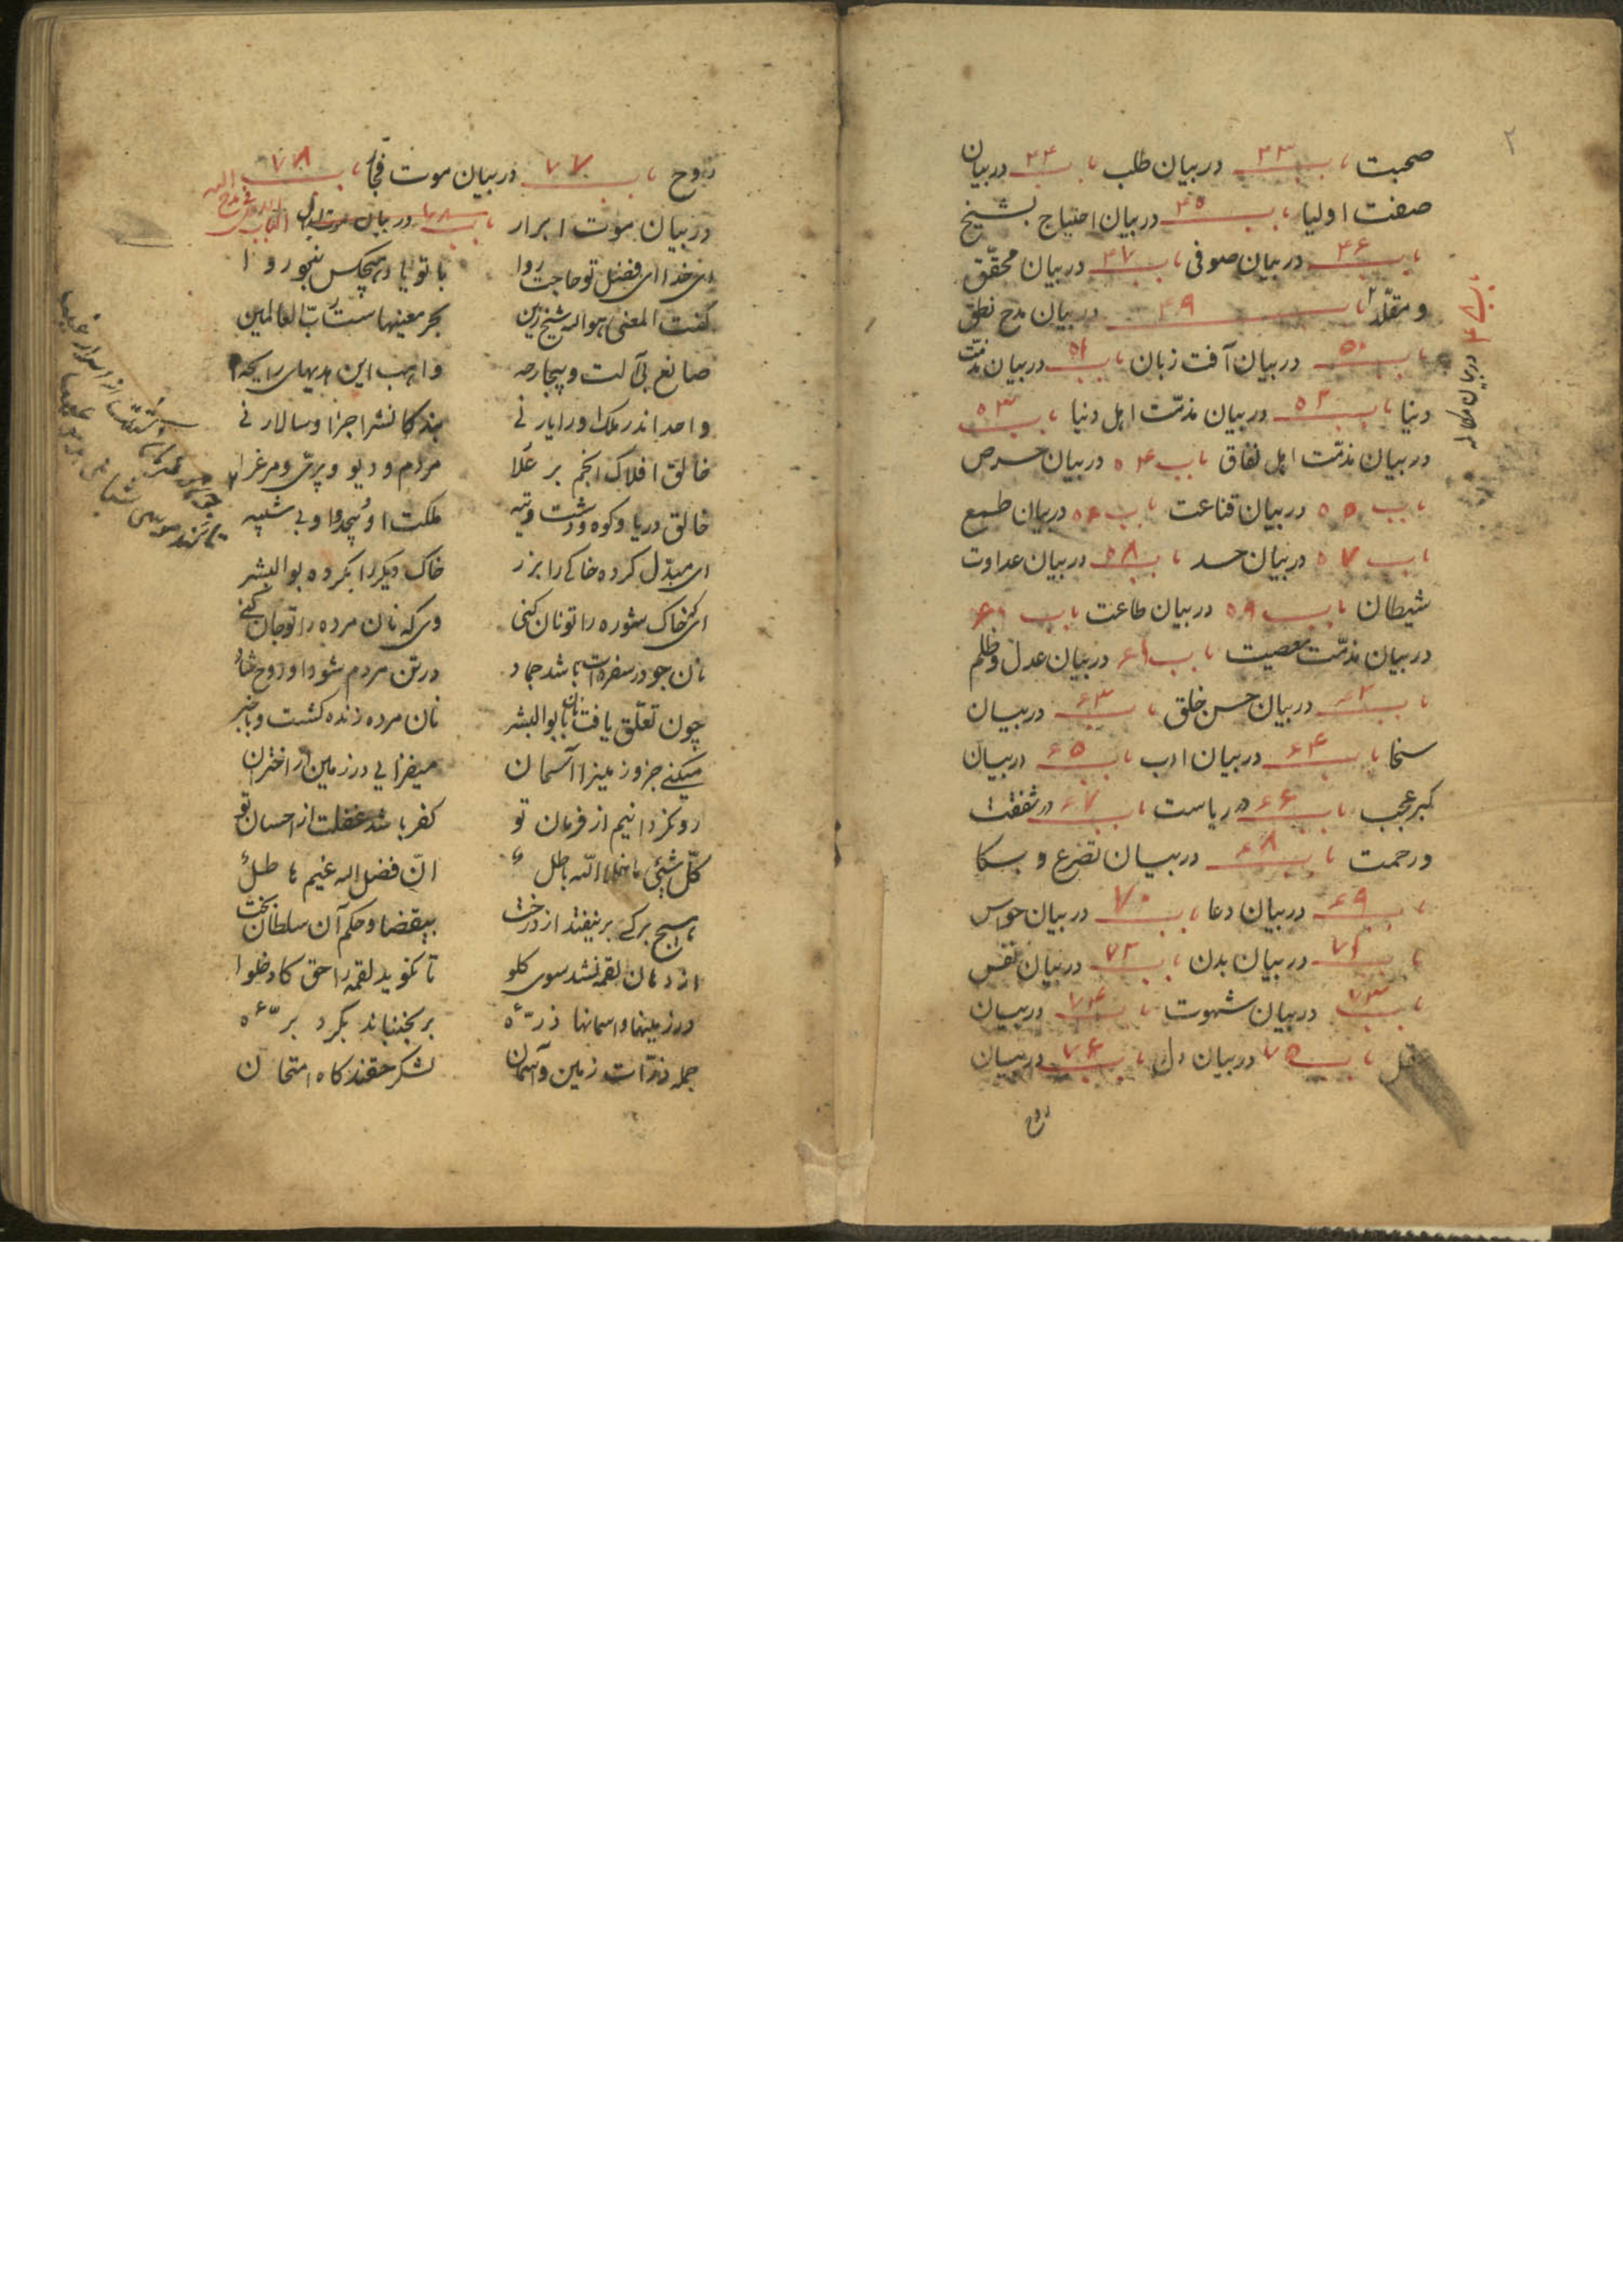 ۲
صحبت باب ۴۳ در بیان طلب باب ۴۴ در بیان
صفت اولیا باب ۴۵ در بیان احتیاج بشیخ
باب ۴۶ در بیان صوفی باب ۴۷ در بیان محقّق
و مقلّد باب ۴۹ در بیان مدح نطق
باب ۵۰ در بیان آفت زبان باب ۵۱ در بیان مذمّت
دنیا باب ۵۲ در بیان مذمّت اهل دنیا باب ۵۳
در بیان مذمّت اهل نفاق باب ۵۴ در بیان حرص
باب ۵۵ در بیان قناعت باب ۵۶ در بیان طمع
باب ۵۷ در بیان حسد باب ۵۸ در بیان عداوت
شیطان باب ۵۹ در بیان طاعت باب ۶۰
در بیان مذمّت معصیت باب ۶۱ در بیان عدل و ظلم
باب ۶۲ در بیان حسن خلق باب ۶۳ در بیان
سخا باب ۶۴ در بیان ادب باب ۶۵ در بیان
کبر عجب باب ۶۶ در ریاست باب ۶۷ در شفقت
و رحمت باب ۶۸ در بیان تضرع و بکا
باب ۶۹ در بیان دعا باب ۷۰ در بیان حواس
باب ۷۱ در بیان بدن باب ۷۲ در بیان نفس
باب ۷۳ در بیان شهوت باب ۷۴ در بیان
عقل باب ۷۵ در بیان دل باب ۷۶ در بیان
روح
باب ۴۸ در بیان
روح باب ۷۷ در بیان موت فجّار باب ۷۸
در بیان موت ابرار باب در بیان
ای خدا ای فضل تو حاجت روا با تو یاد هیچکس نبود روا
گفت المعنی هو الله شیخ دین بحر معنیهاست ربّ العالمین
صانع بی آلت و بیجارحه واهب این هدیهای رابحه
واحد اندر ملک او را یار نی بندکانشرا جز او سالار نی
خالق افلاک انجم بر علا مردم و دیو و پری و مرغ را
خالق دریا و کوه و دشت و تیه ملکت او بیحد و او بی شبیه
ای مبدّل کرده خاکی را بزر خاک دیکر را بکرده بوالبشر
ای که خاک شوره را تو نان کنی وی که نان مرده را تو جان کنی
نان چو در سفره است باشد جماد در تن مردم شود او روح شاد
چون تعلّق یافت نان با بوالبشر نان مرده زنده کشت و باخبر
میکنی جزو زمینرا آسمان میفزایی در زمین از اختران
رو نگردانیم از فرمان تو کفر باشد غفلت از احسان تو
کلّ شیئی ما خلا الله باطل انّ فضل الله غیم هاطل
هیچ برکی بر نیفتد از درخت بیقضا و حکم آن سلطان بخت
از دهان لقمه نشد سوی کلو تا نکوید لقمه را حق کادخلوا
در زمینها و اسمانها ذرّه‌ء بر نجنباند نکردد پرّه‌ء
جمله ذرّات زمین و آسمان لشکر حقند کاه امتحان